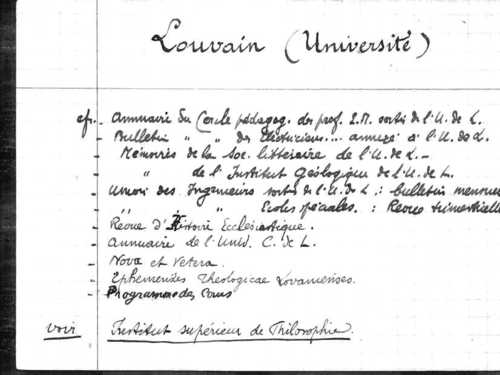 Louvain (Université)
cfr. - Annuaire du Cercle pédagog. des prof. E.M. sortis de l'U. de L.
- Bulletin " " des Electriciens... annexé à l'U. de L.
- Mémoires de la Soc. littéraire de l'U. de L. -
- " de l'Institut Géologique de l'U. de L.
- Union des Ingénieurs sortis de l'U. de L. : bulletin mensuel
- " " Ecoles spéciales. : Revue trimestrielle
- Revue d'Histoire Ecclésiastique.
- Annuaire de l'Univ. C. de L.
- Nova et Vetera.
- Ephemerides Theologicae Lovanienses.
- Programmes des Cours
voir Institut supérieur de Philosophie.